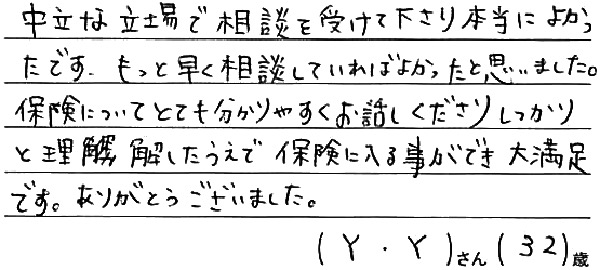 中立な立場で相談を受けて下さり本当によかっ
たです。もっと早く相談していればよかったと思いました。
保険についてとても分かりやすくお話しくださりしっかり
と理解したうえで保険に入る事ができ大満足
です。ありがとうございました。
(Y・Y)さん(32)歳